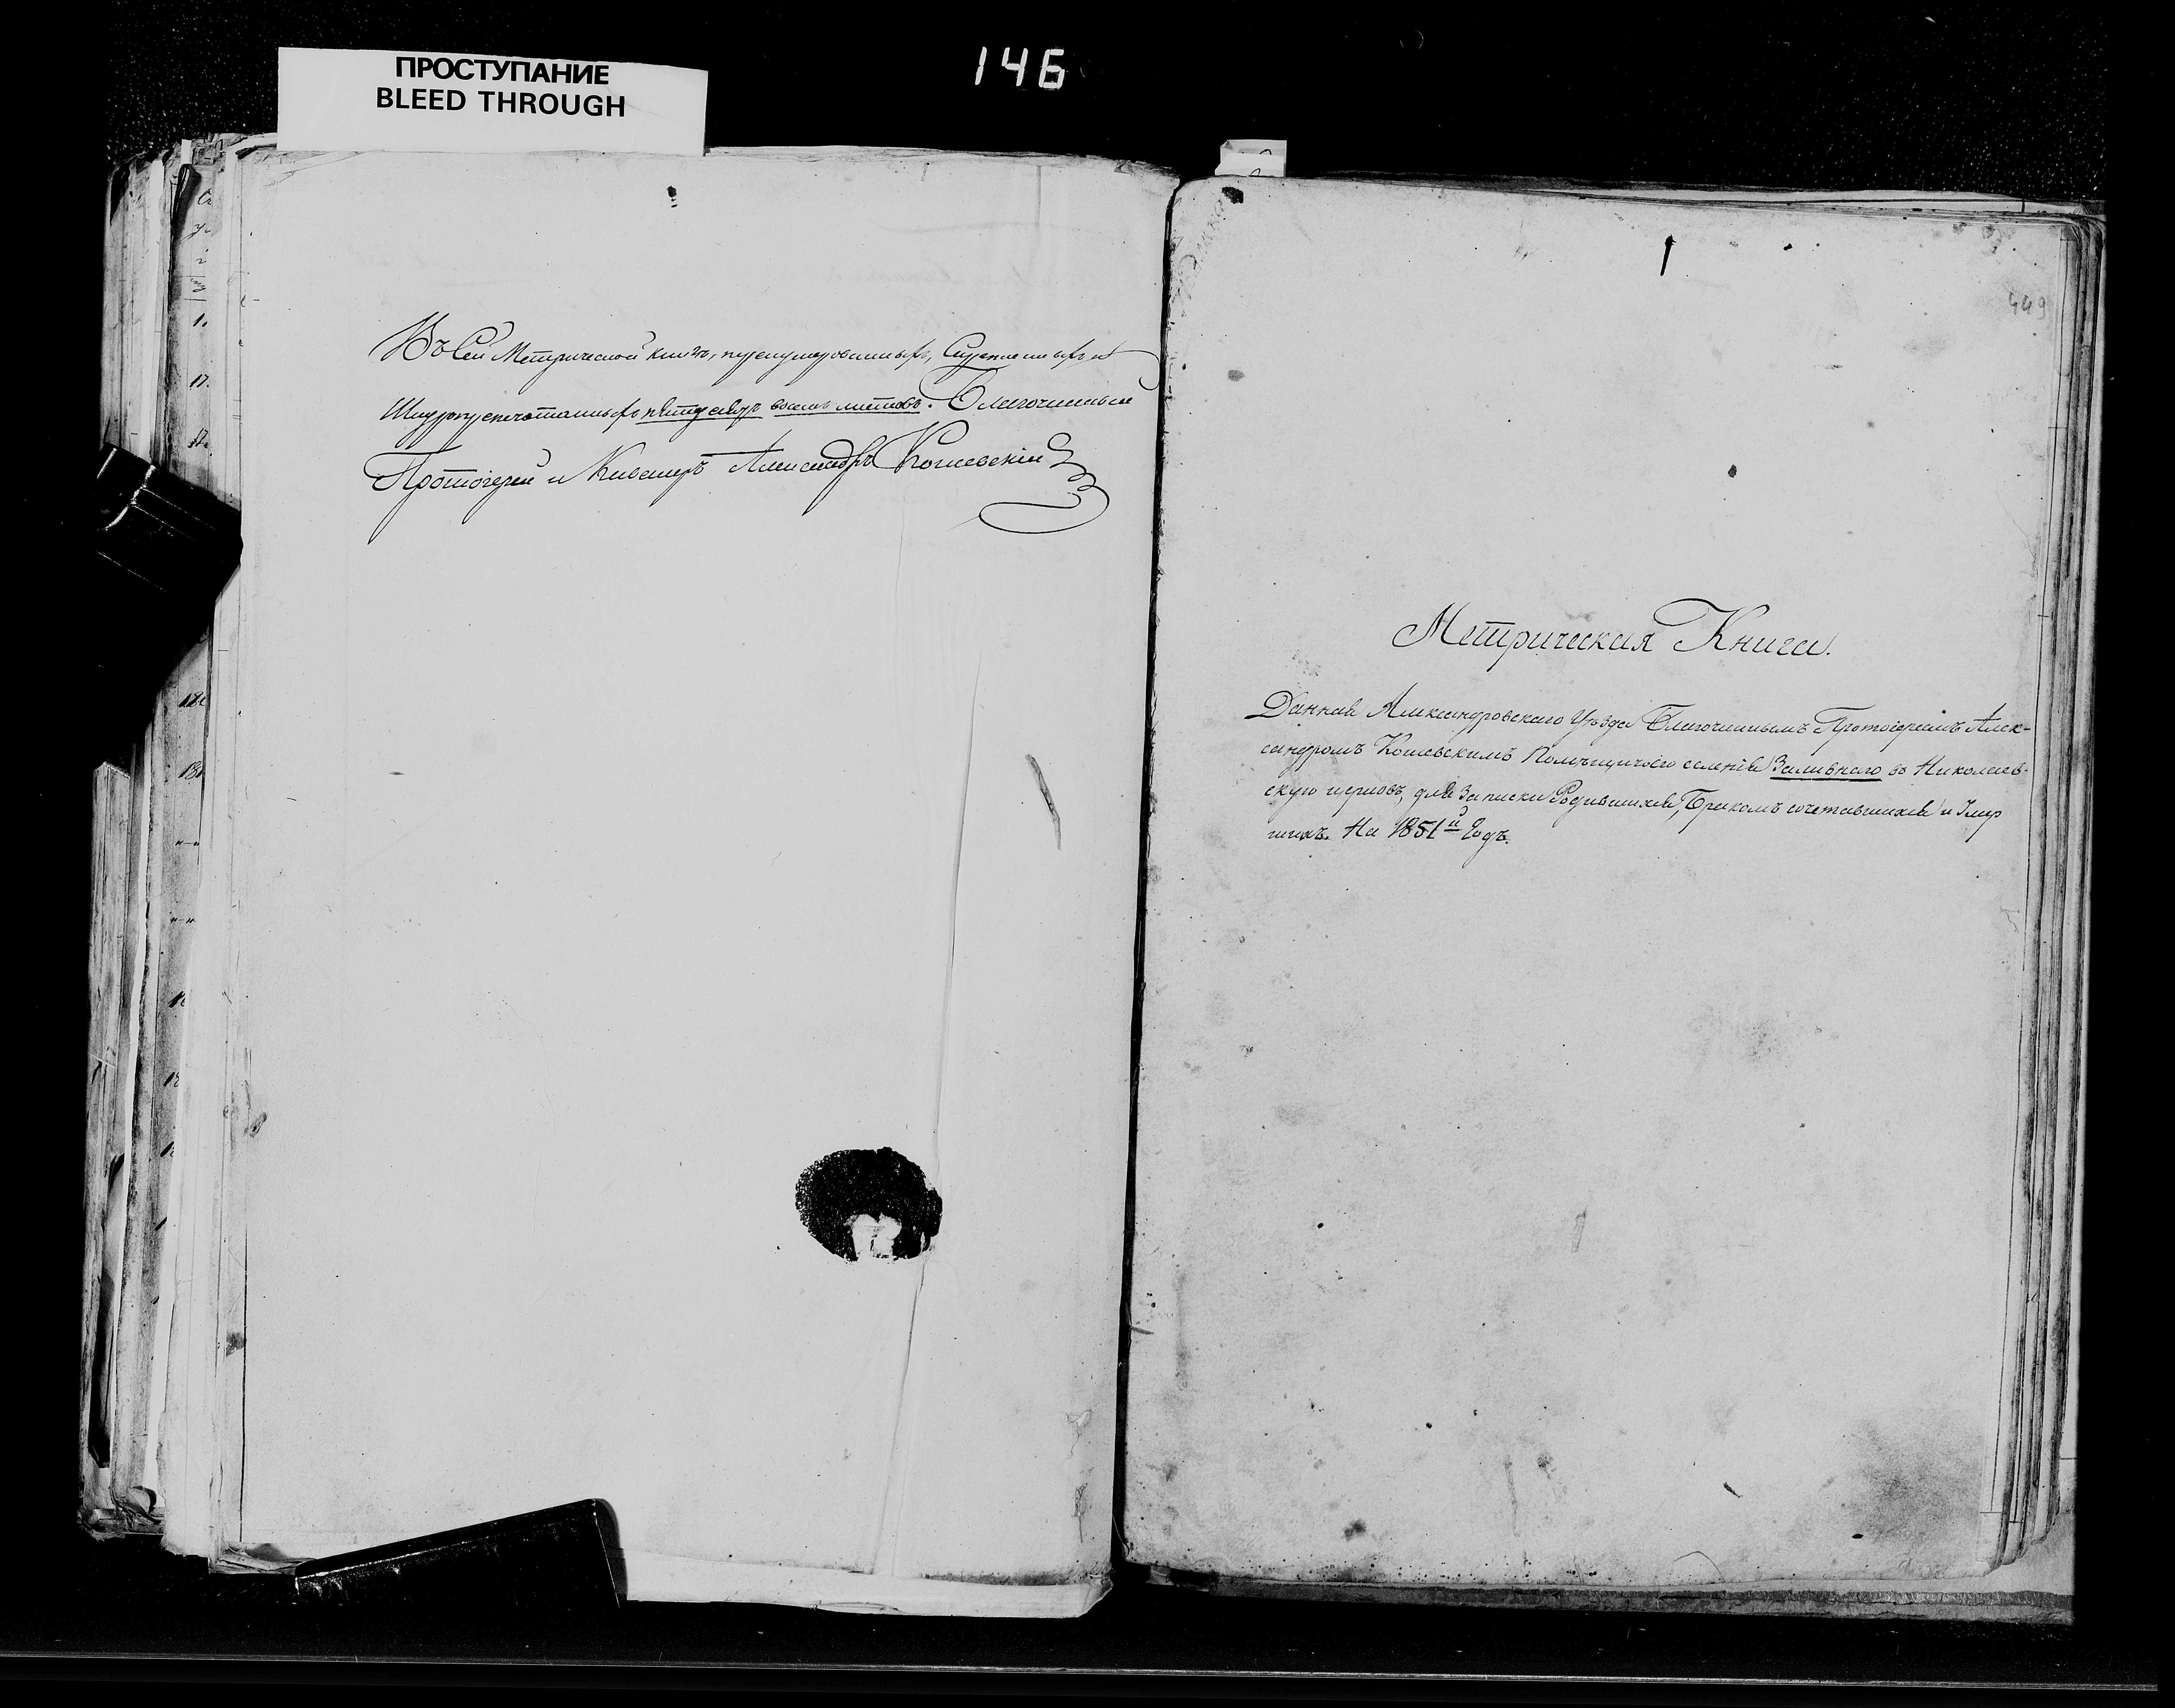 ПРОСТУПАНИЕ
BLEED THROUGH
146
Въ Сей Метрической книгѣ, пренумерованныхъ, Скрепленныхъ и
Шнуропрепечатанныхъ пятдесятъ восемъ листовъ. Благочинный
Протоіерей и Кавалеръ Александръ Кошевскій
449
Метрическая Книга.
Данная Александровскаго Уѣзда Благочиннымъ Протоіереемъ Алек-
сандромъ Кошевскимъ Помѣщичьего селенія Заливнаго въ Николаев-
скую церковь, для Записки Родившихся, Бракомъ сочетавшихся и Умер
шихъ. На 1851й Годъ.